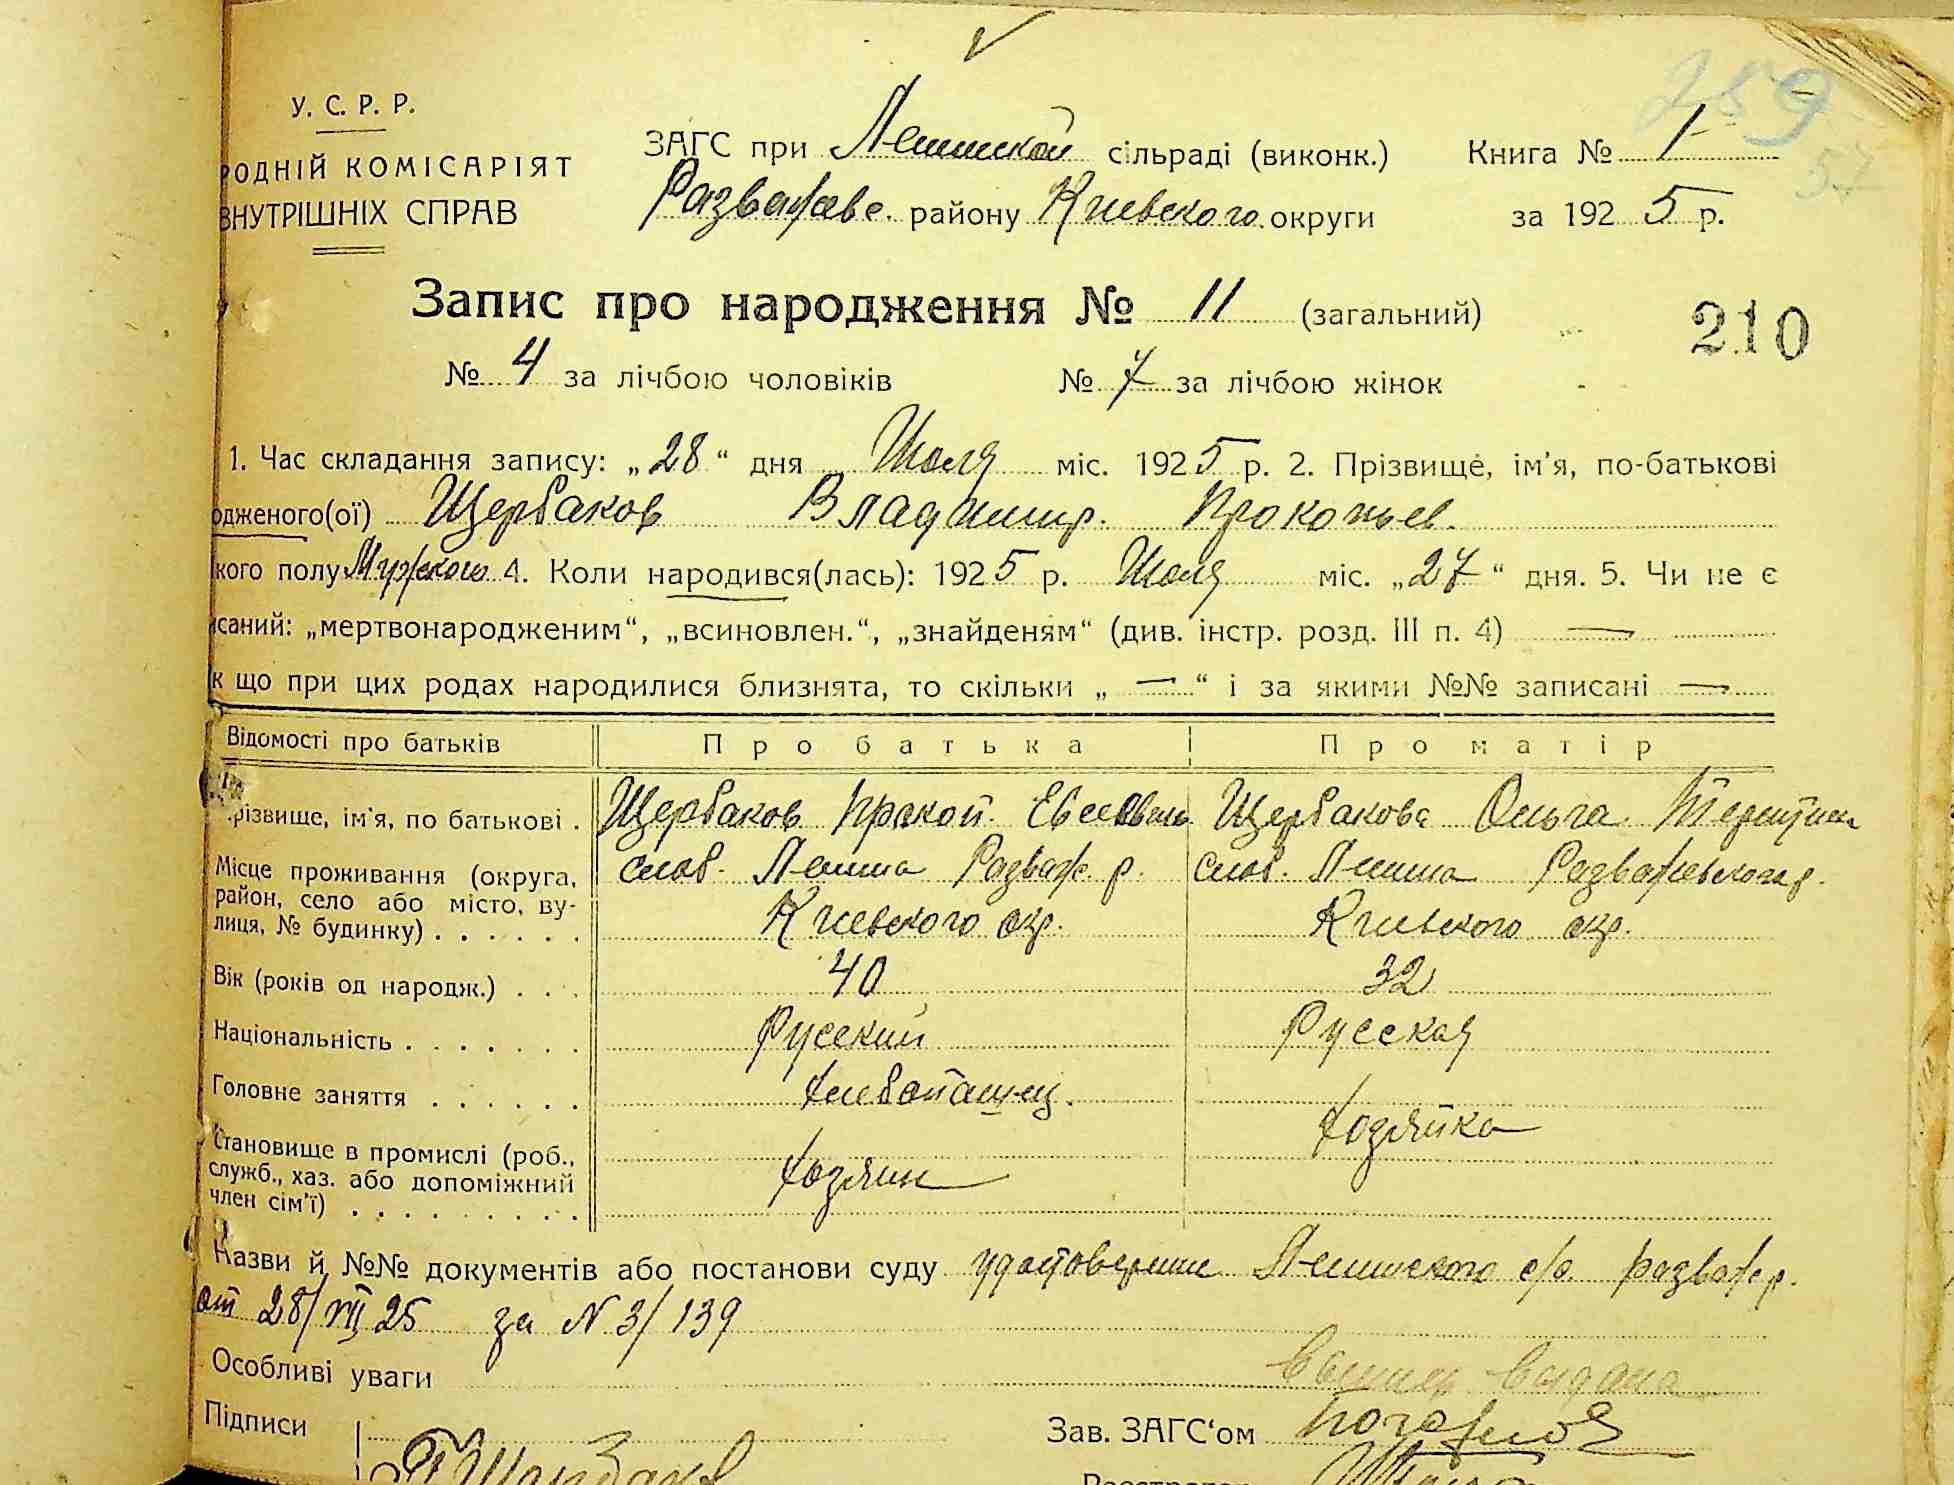 289
57
У. С. Р. Р.
РОДНІЙ КОМІСАРІЯТ
ВНУТРІШНІХ СПРАВ
ЗАГС при сільраді (виконк.) Книга № 1
Разважевс. району Киевского округи за 1925 р.
Запис про народження № 11 (загальний)
210
№ 4 за лічбою чоловіків № 7 за лічбою жінок
1. Час складання запису: „28“ дня Июля міс. 1925 р. 2. Прізвище, ім'я, по-батькові
одженого(ої) Щербаков Владимир. Прокопьев.
кого полу Мужского 4. Коли народився(лась): 1925 р. Июля міс. „27“ дня. 5. Чи не є
исаний: „мертвонародженим“, „всиновлен.“, „знайденям“ (див. інстр. розд. III п. 4) —
к що при цих родах народилися близнята, то скільки „ — “ і за якими №№ записані —
Відомості про батьків Про батька Про матір
різвище, ім'я, по батькові . Щербаков Прокоп. Щербакова Ольга
Місце проживання (округа, район, село або місто, вулиця, № будинку) . . . . . .
слоб. Разваж. р. Киевского окр.
слоб. Разважевского р. Киевского окр.
Вік (років од народж.) . . . 40 32
Національність . . . . . . . Русский Русская
Головне заняття . . . . . . Хлебопашец.
Становище в промислі (роб., служб., хаз. або допоміжний член сім'ї) . . . . . . . . .
Хозяин Хозяйка
Назви й №№ документів або постанови суду с/с. разваж р.
от 28/VII 25 за N 3/139
Особливі уваги выдана
Підписи Зав. ЗАГС'ом